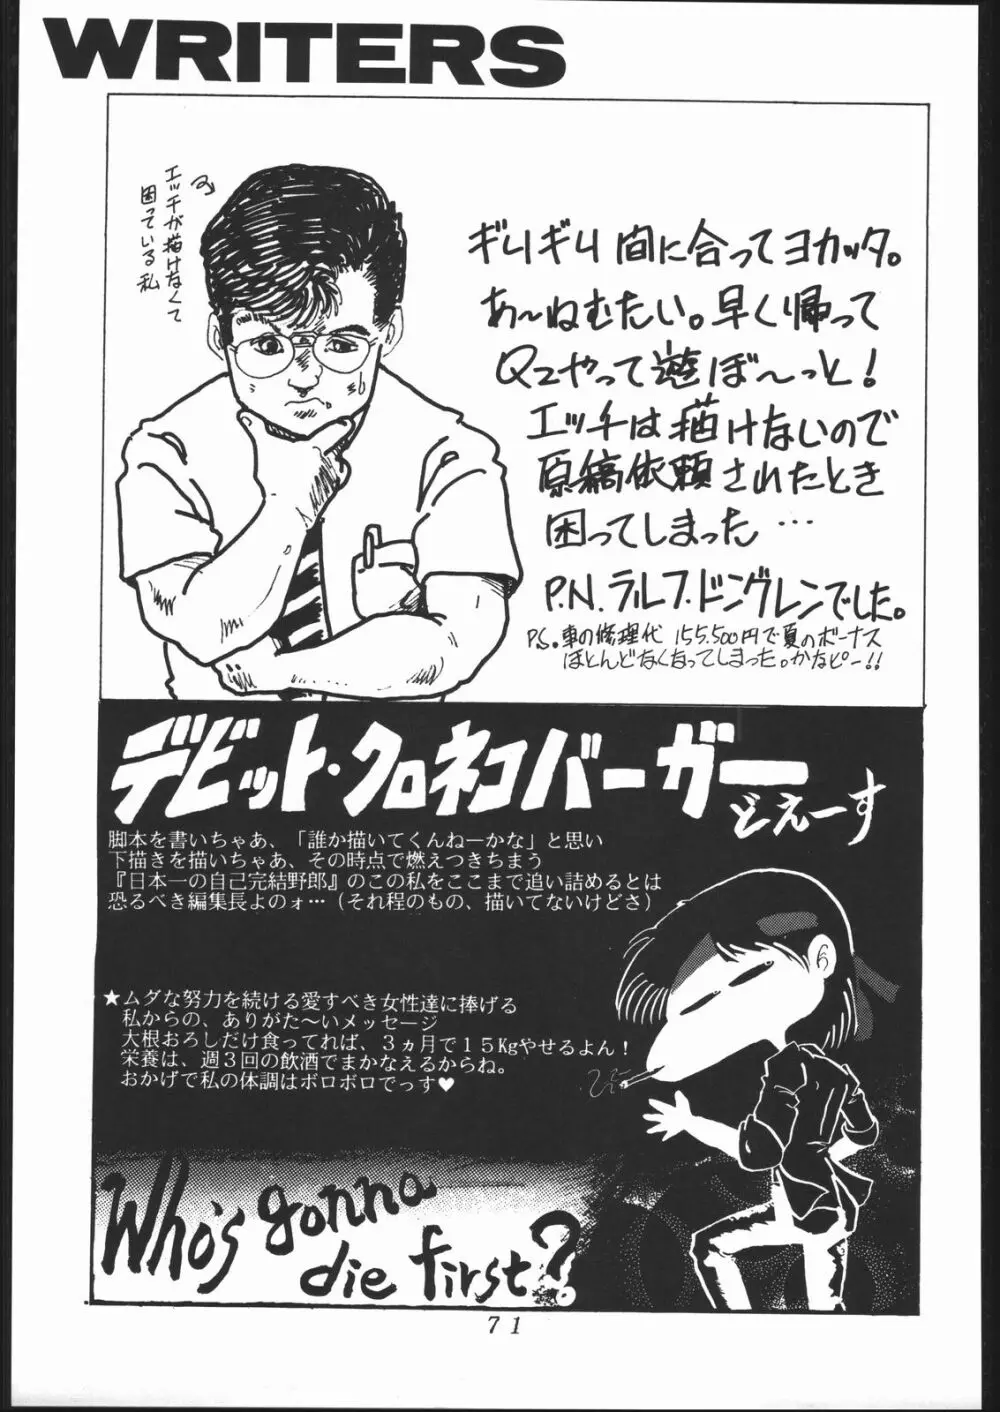 WRITERS
エッチが描けなくて
困っている私
ギリギリ間に合ってヨカッタ。
あ〜ねむたい。早く帰って
Q2やって遊ぼ〜っと!
エッチは描けないので
原稿依頼されたとき
困ってしまった…
P.N.ラルフ・ドングレンでした。
P.S.車の修理代 155,500円で夏のボーナス
ほとんどなくなってしまった。かなピー!!
デビット・クロネコバーガー
どえーす
脚本を書いちゃあ、「誰か描いてくんねーかな」と思い
下描きを描いちゃあ、その時点で燃えつきちまう
『日本一の自己完結野郎』のこの私をここまで追い詰めるとは
恐るべき編集長よのォ…(それ程のもの、描いてないけどさ)
★ムダな努力を続ける愛すべき女性達に捧げる
私からの、ありがた〜いメッセージ
大根おろしだけ食ってれば、3ヵ月で15Kgやせるよん!
栄養は、週3回の飲酒でまかなえるからね。
おかげで私の体調はボロボロでっす♥
Who's gonna
die first?
71